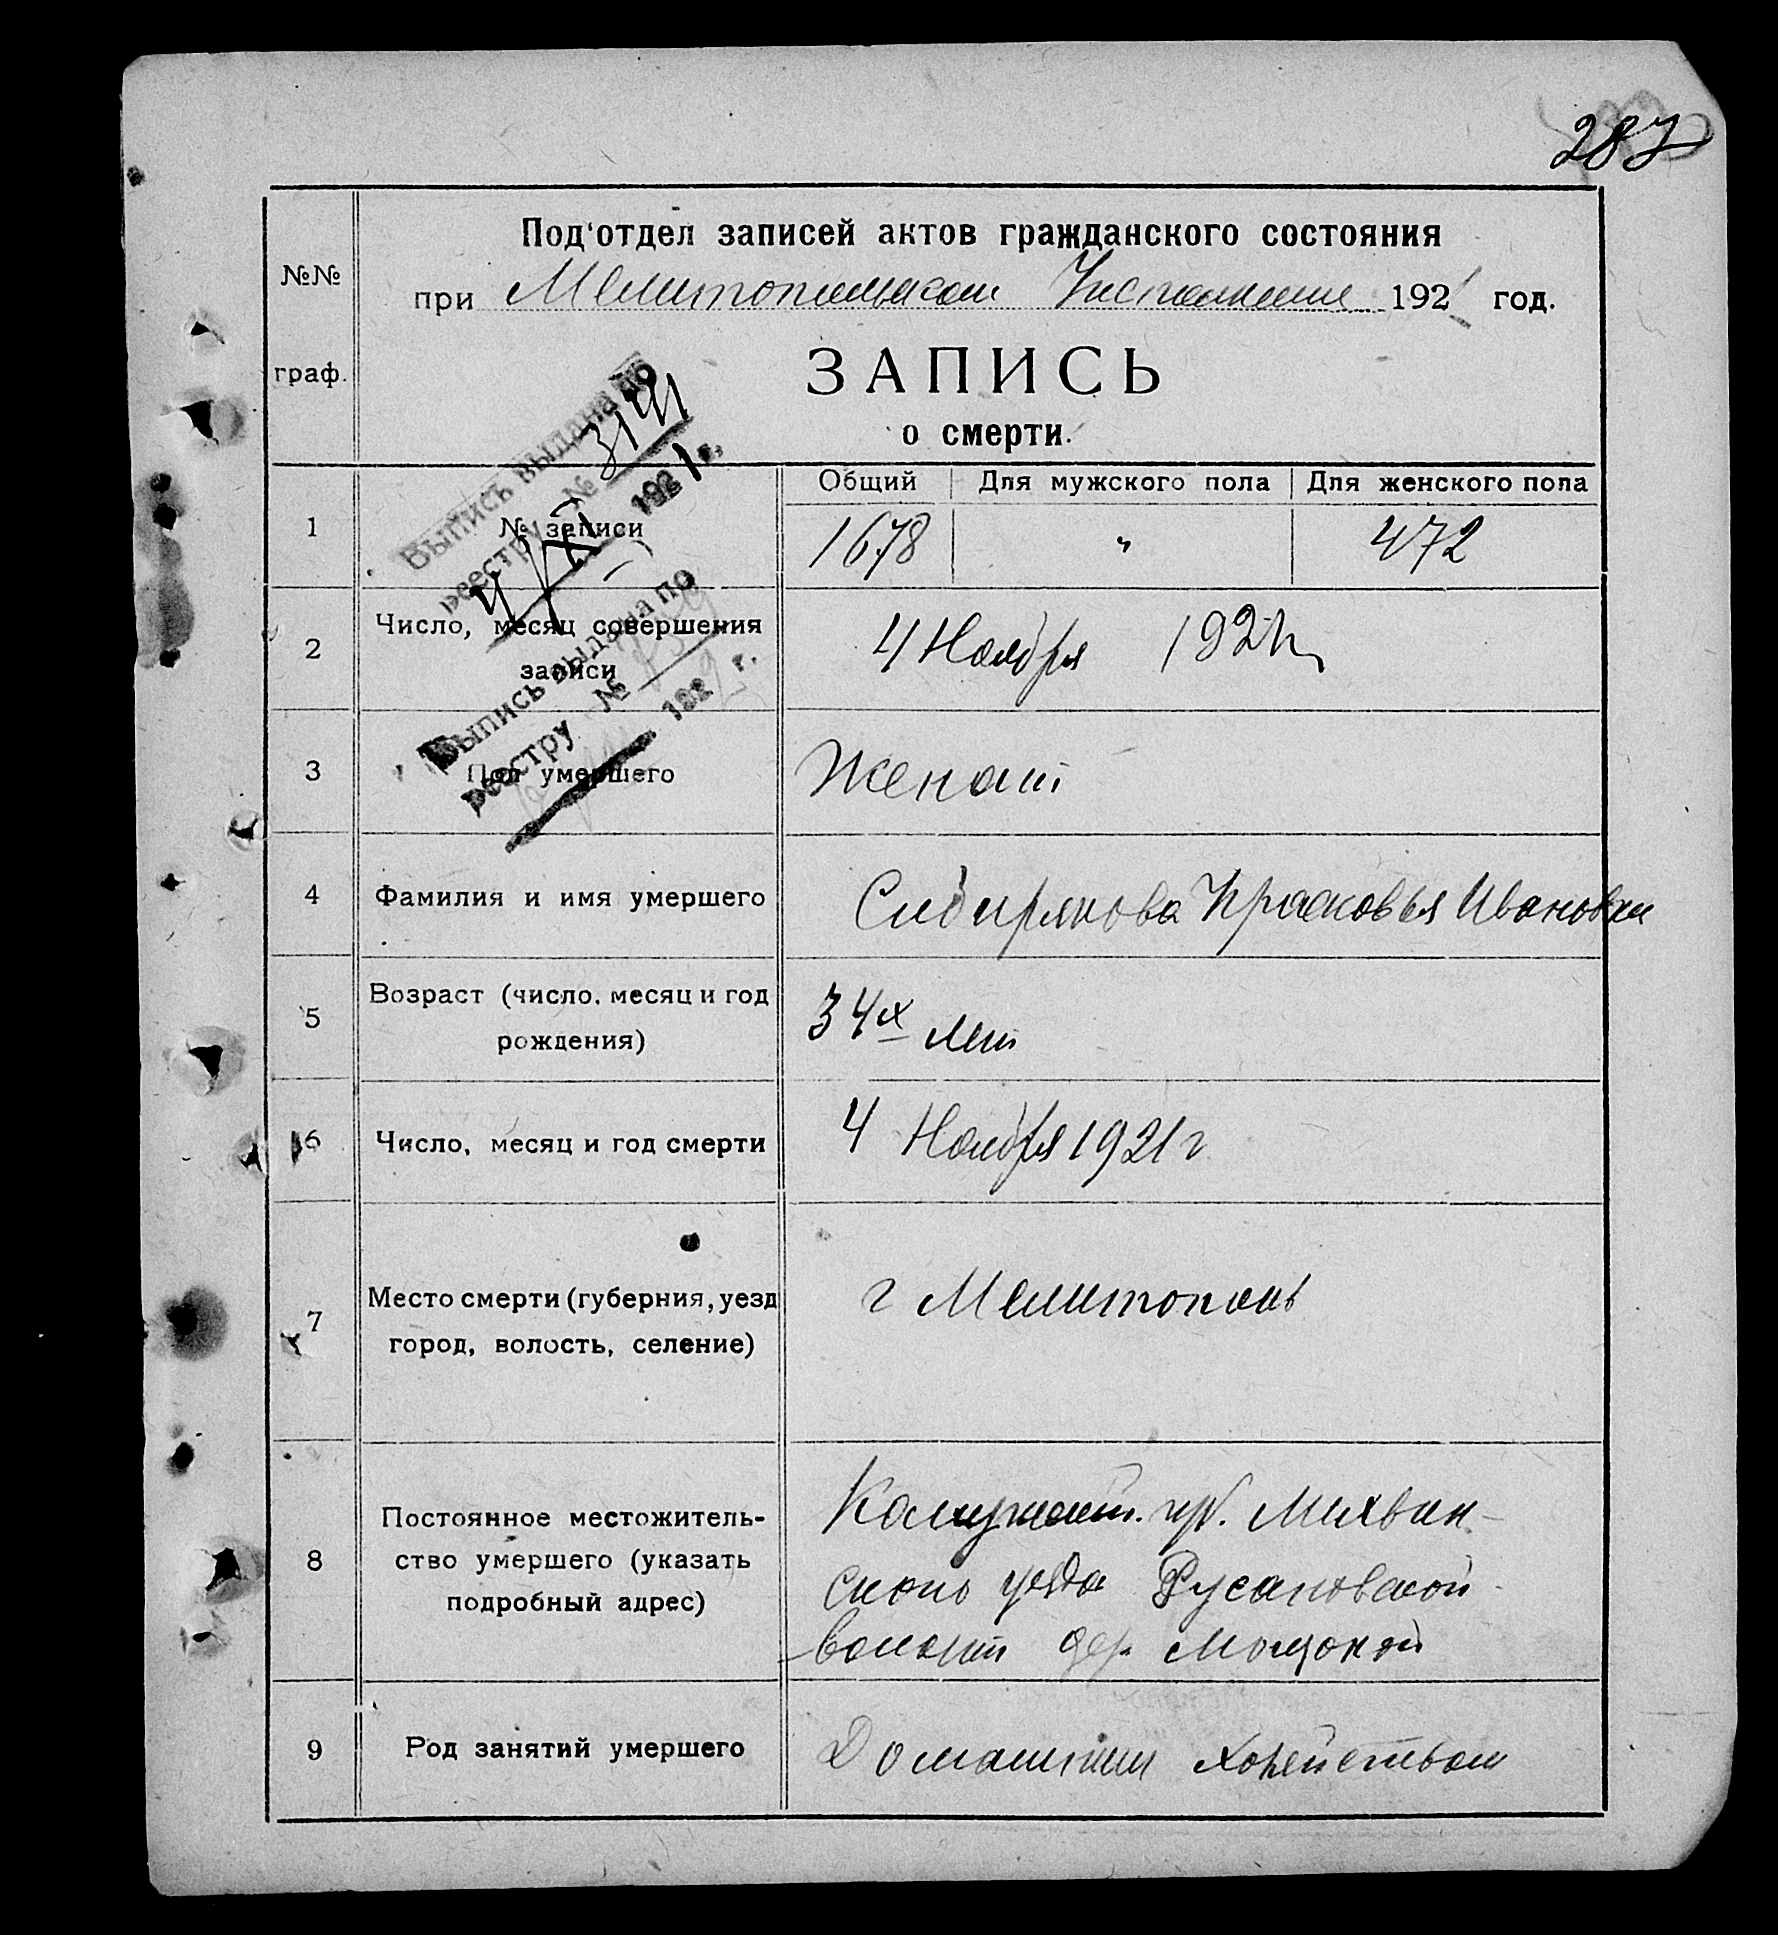 287
Под'отдел записей актов гражданского состояния
№№ граф.
при Мелитопольском Исполкоме 1921 год.
ЗАПИСЬ
о смерти.
Выпись выдана по
реестру № 3191
4/XI 1921 г.
Выпись выдана по
реестру №
192 г.
Общий Для мужского пола Для женского пола
1 № записи 1678 " 472
2 Число, месяц совершения
записи
4 Ноября 1921 г
3 Пол умершего Женский
4 Фамилия и имя умершего Сибирякова Прасковья Ивановна
5 Возраст (число, месяц и год
рождения)
34х лет
6 Число, месяц и год смерти 4 Ноября 1921 г
7 Место смерти (губерния, уезд
город, волость, селение)
г Мелитополь
8 Постоянное местожитель-
ство умершего (указать
подробный адрес)
Калужской. губ.
уезда Русановской
волости дер.
9 Род занятий умершего Домашним хозяйством